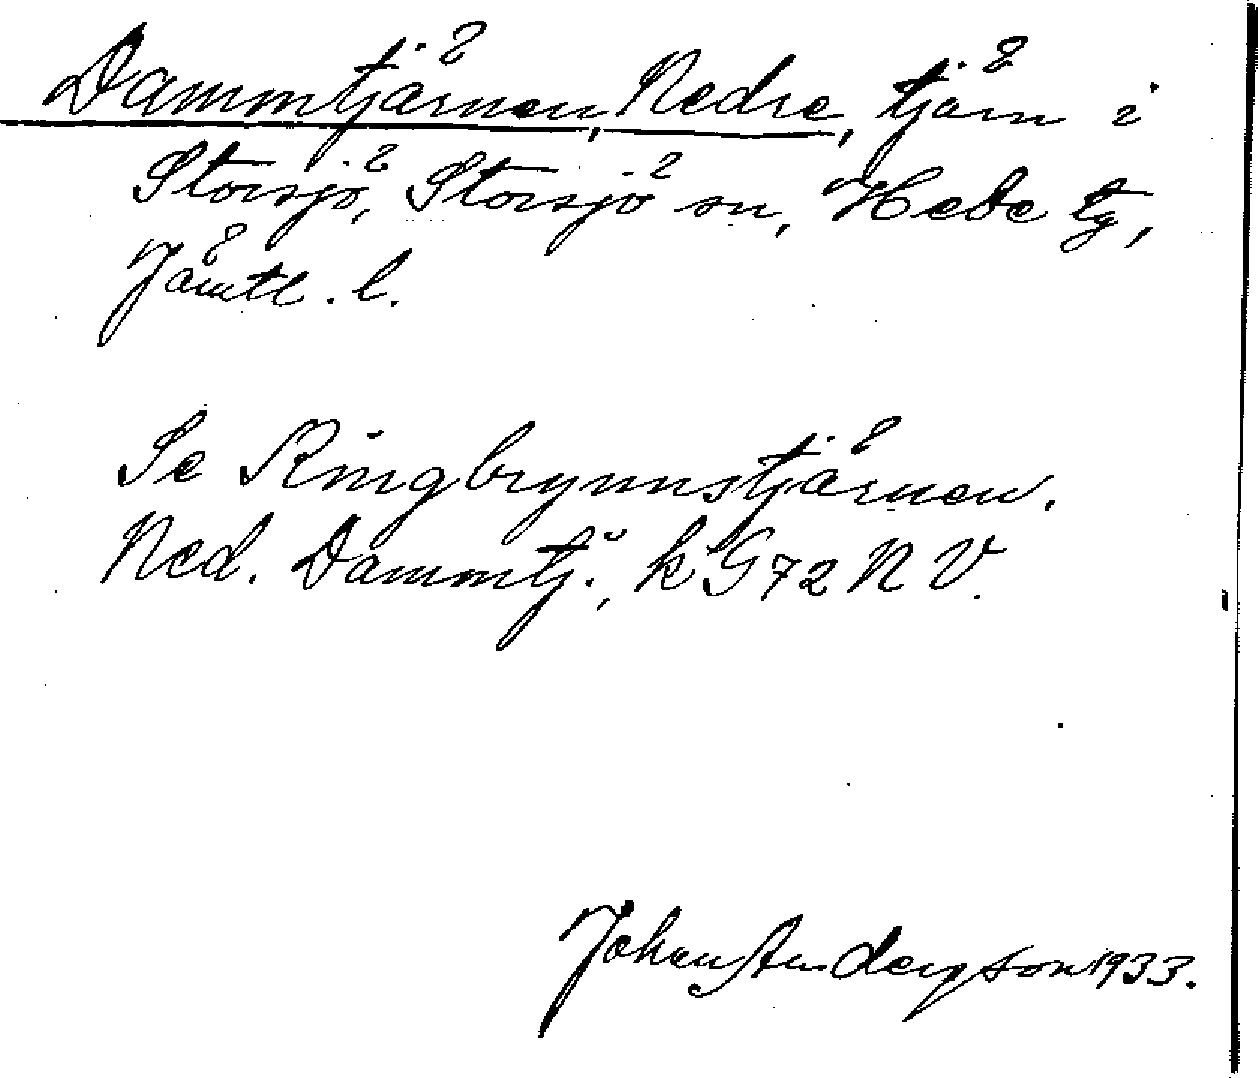 Dammtjärnen, Nedre, tjärn i
Storsjö, Storsjö sn, Hede tg,
Jämtl. l.
Se Ringbrynnstjärnen.
Ned. Dammtj., k G 72 N V.
Johan Anderson 1933.